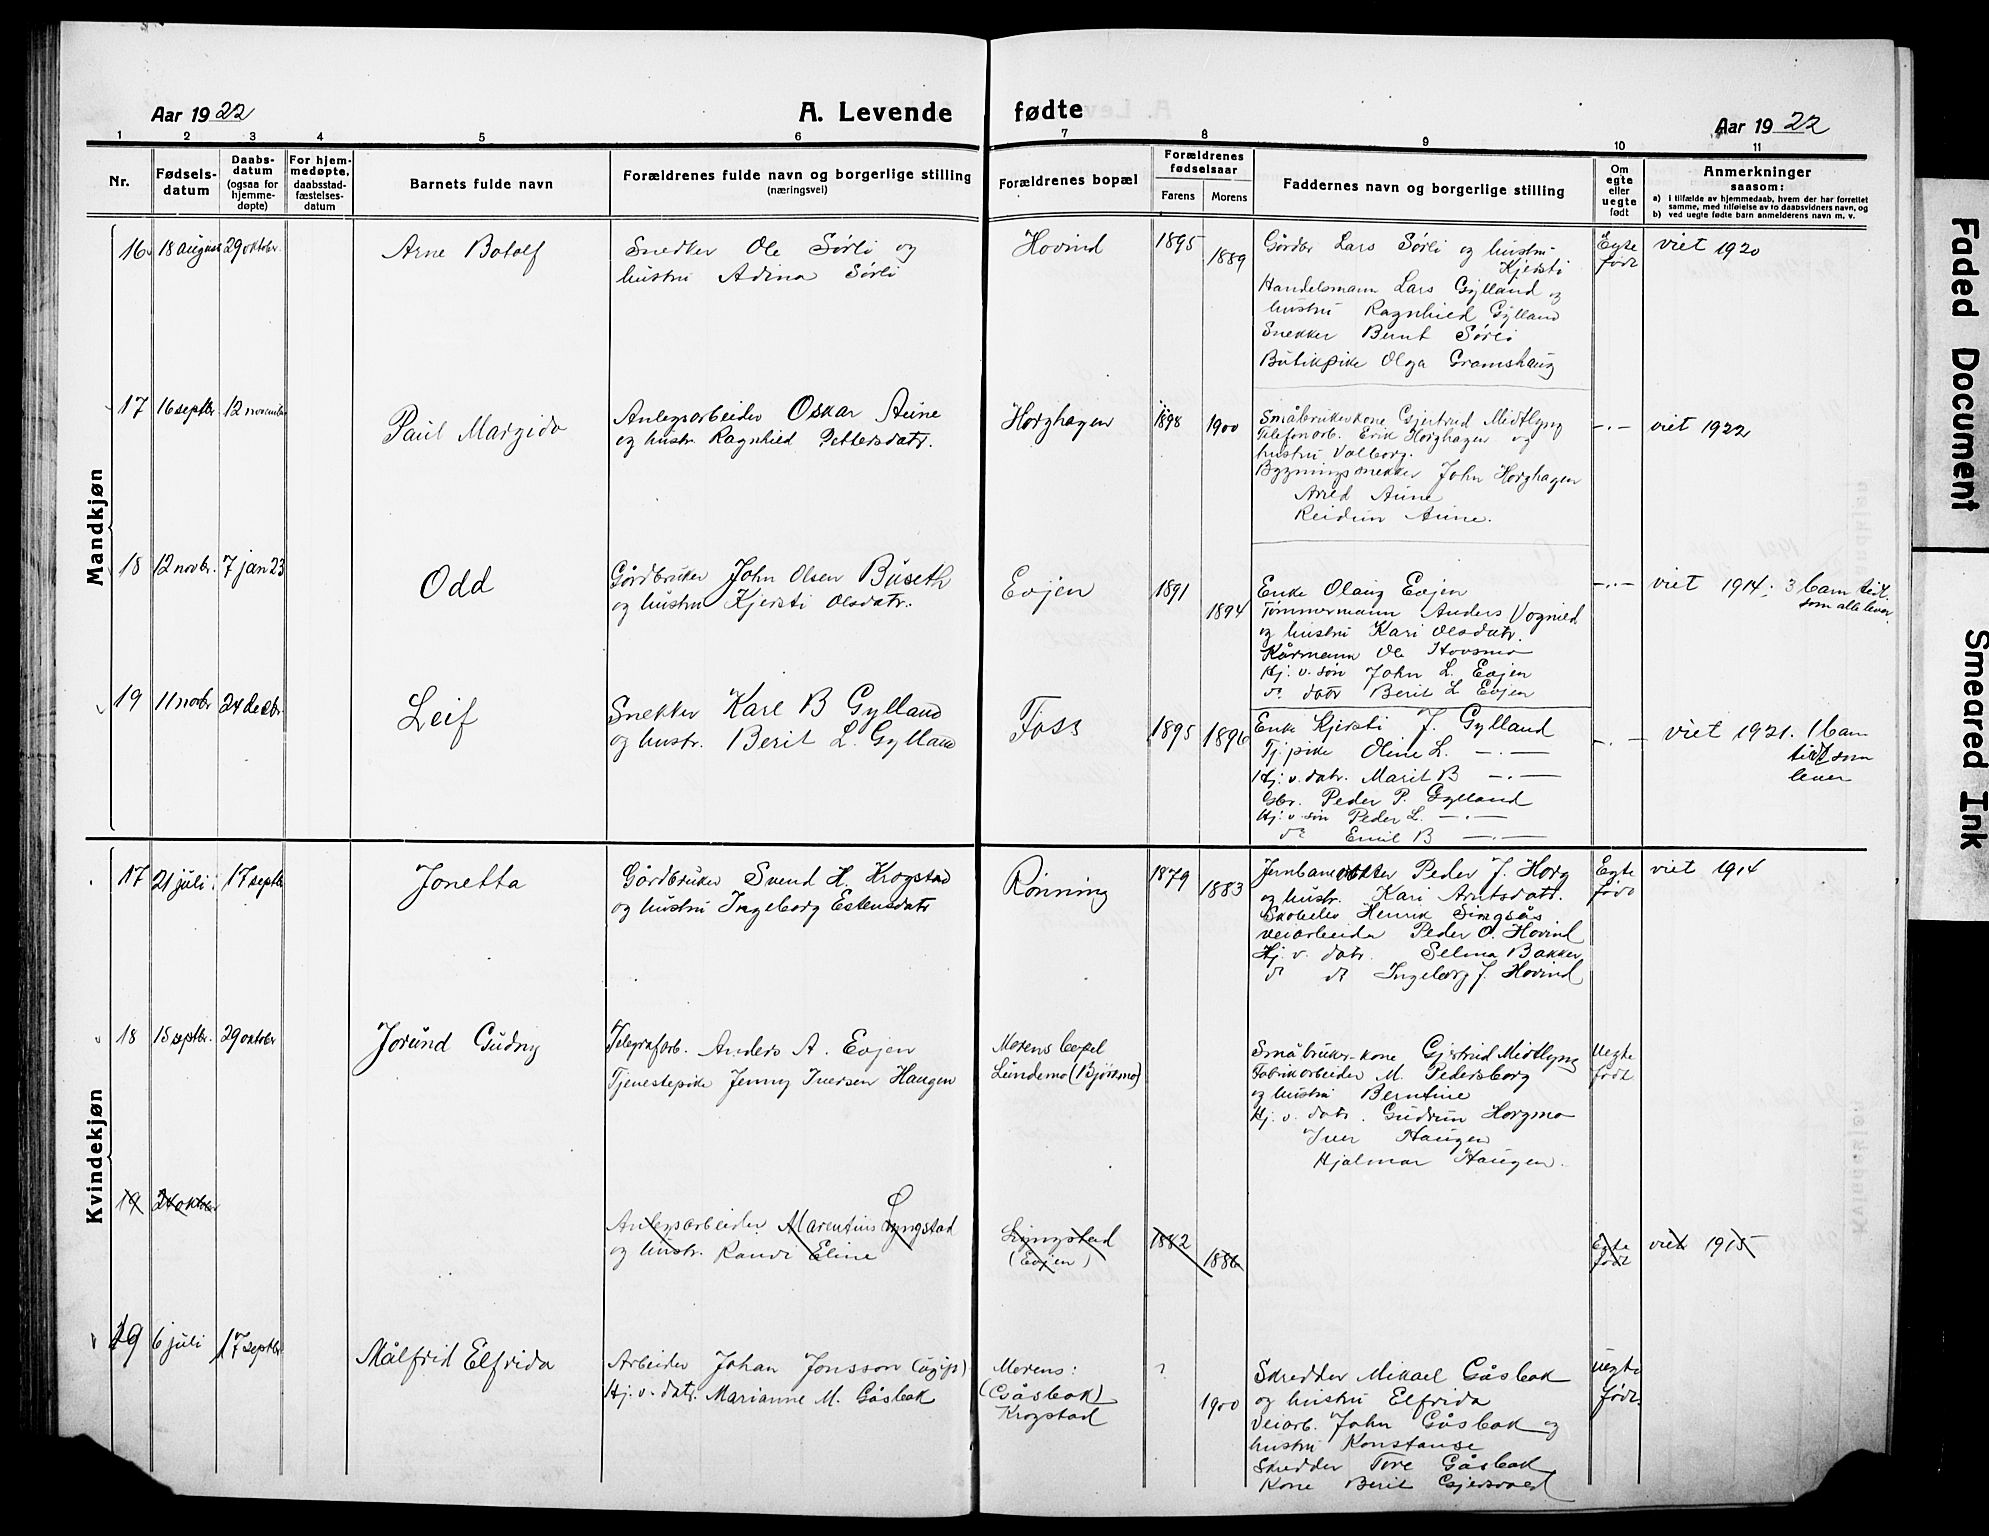 Aar 1922
A. Levende
fødte
Aar 1922
1 2 3 4 5 6 7 8 9 10 11
Nr.
Fødsels-
datum
Daabs-
datum
(ogsaa for
hjemme-
døpte)
For hjem-
medøpte,
daabsstad-
fæstelses-
datum
Barnets fulde navn
Forældrenes fulde navn og borgerlige stilling
(næringsvei)
Forældrenes bopæl
Forældrenes
fødselsaar
Farens Morens
Faddernes navn og borgerlige stilling
Om
egte
eller
uegte
født
Anmerkninger
saasom:
a) i tilfælde av hjemmedaab, hvem der har forrettet
samme, med tilføielse av to daabsvidners navn, og
b) ved uegte fødte barn anmelderens navn m. v.
Mandkjøn
16 18 august 29 oktober
Arne Botolf
Snedker Ole Sørli og
hustru Adina Sørli
Hovind
1895 1889
Gårdbr Lars Sørli og hustru
Kjersti
Handelsmann Lars Gylland og
hustru Ragnhild Gylland
Snekker Bernt Sørli
Butikpike Olga Gramshaug
Egte
født
viet 1920
17 16 septbr 12 november
Paul Margido
Anlegsarbeider Oskar Aune
og hustr. Ragnhild Pettersdatr.
Horghagen
1898 1900
Småbrukerkone Gjertrud Midtlyng
Telefonarb. Erik Horghagen og
hustru Valborg.
Bygningssnekker John Horghagen
Aune
Reidun Aune.
-.-
viet 1922
18 12 novbr. 7 jan 23
Odd
Gårdbruker John Olsen Buseth
og hustru Kjersti Olsdatr.
Evjen
1891 1894
Enke Olaug Evjen
Tømmermann Anders Vognild
og hustru Kari Olsdatr.
Kårmann Ole Hovsmo
Hj. v. søn John L. Evjen
do datr Berit L Evjen
-.-
viet 1914; 3 barn tidl.
som alle lever
19 11 novbr 24 decbr.
Leif
Snekker Karl B Gylland
og hustr. Berit L. Gylland
Foss
1895 1896
Enke Kjersti J. Gylland
Tj. pike Oline L. -.-
Hj. v. datr. Marit B -.-
Gbr. Peder P. Gylland
Hj. v. søn Peder L. -.-
do Emil B -.-
-.-
viet 1921. 1 barn
tidl som
lever
Kvindekjøn
17 21 juli 17 septbr
Jonetta
Gårdbruker Svend H. Krogstad
og hustru Ingeborg Estensdatr
Rønning
1879 1883
Jernbanevokter Peder J. Horg
og hustr. Kari Arntsdatr.
Henrik Singsås
veiarbeider Peder O. Hovind
Hj. v. datr. Selma Bakker
do do Ingeborg J. Hovind
Egte
født
viet 1914
18 15 septbr. 29 oktober
Jorund Gudny
Telegrafarb. Anders A. Evjen
Tjenestepike Jenny Iversen Haugen
Morens bopel
Lundemo (Bjørkmo)
Småbruker-kone Gjertrud Midtlyng
Fabrikarbeider M. Pedersborg
og hustru Berntine
Hj. v. datr. Gudrun Horgmo
Iver Haugen
Hjalmar Haugen.
Uegte
født
19 oktober
Anlegsarbeider Marentius Lyngstad
og hustr. Randi Eline
Lyngstad
(Evjen)
1882 1886
Egte
født
viet 1915
19 6 juli 17 septbr
Målfrid Elfrida
Arbeider Johan Jonsson (ugift)
Hj. v. datr. Marianne M. Gåsbak
Morens:
(Gåsbak)
Krogstad
? 1900
Skredder Mikael Gåsbak
og hustru Elfrida
veiarb. John Gåsbak og
hustru Konstanse
Skredder Tore Gåsbak
Kone Berit
Uegte
født
Faded Document
Smeared Ink